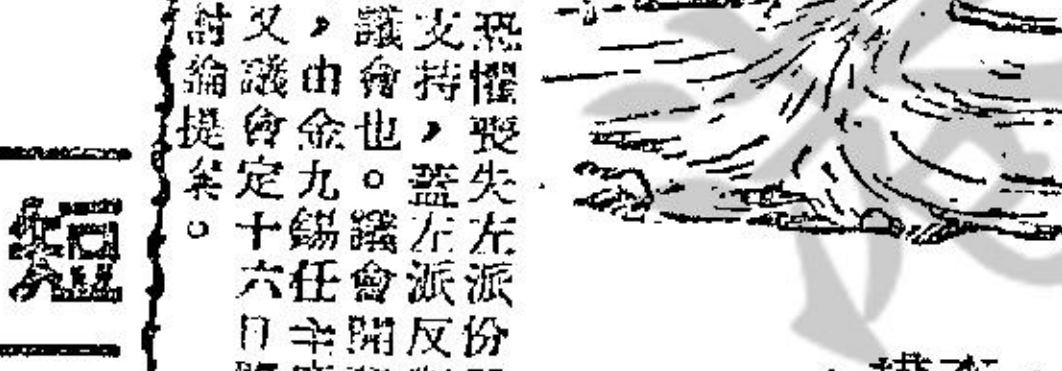 恐懼喪失左派份
支持，蓋左派反
議會也。議會開
，由金九錫任主
又議會定十六日
討論提案。